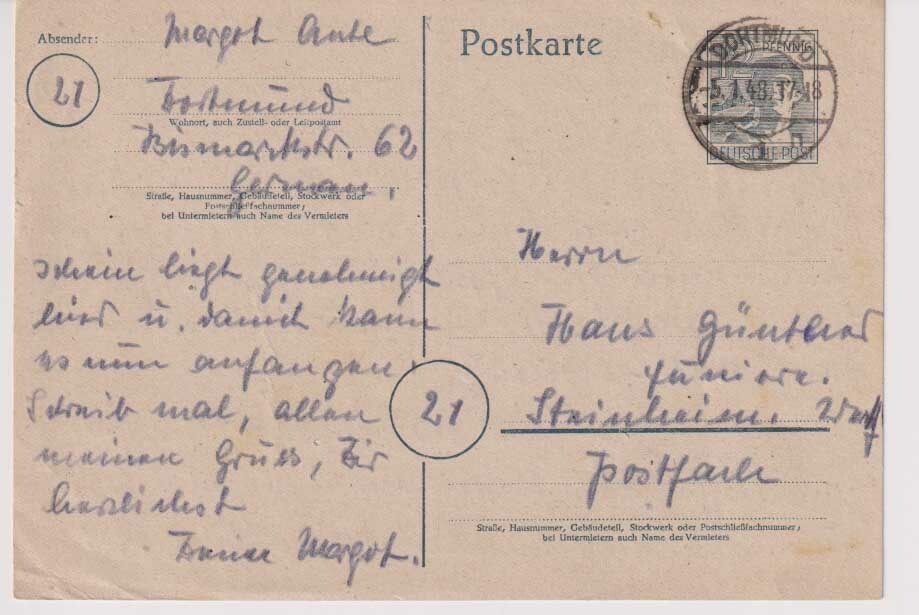 Absender: Margot Ante
21
Dortmund
Wohnort, auch Zustell- oder Leitpostamt
Bismarckstr. 62
German.
Straße, Hausnummer, Gebäudeteil, Stockwerk oder
Postschließfachnummer;
bei Untermietern auch Name des Vermieters
schein liegt genehmigt
hier u. damit kann
es nun anfangen.
Schreib mal, allen
meinen Gruss, Dir
herzlichst
Deine Margot.
Postkarte
DORTMUND
PFENNIG
5.1.48.17-18
DEUTSCHE POST
Herrn
Hans Günther
junior.
21
Steinheim. Westf
Postfach
Straße, Hausnummer, Gebäudeteil, Stockwerk oder Postschließfachnummer;
bei Untermietern auch Name des Vermieters